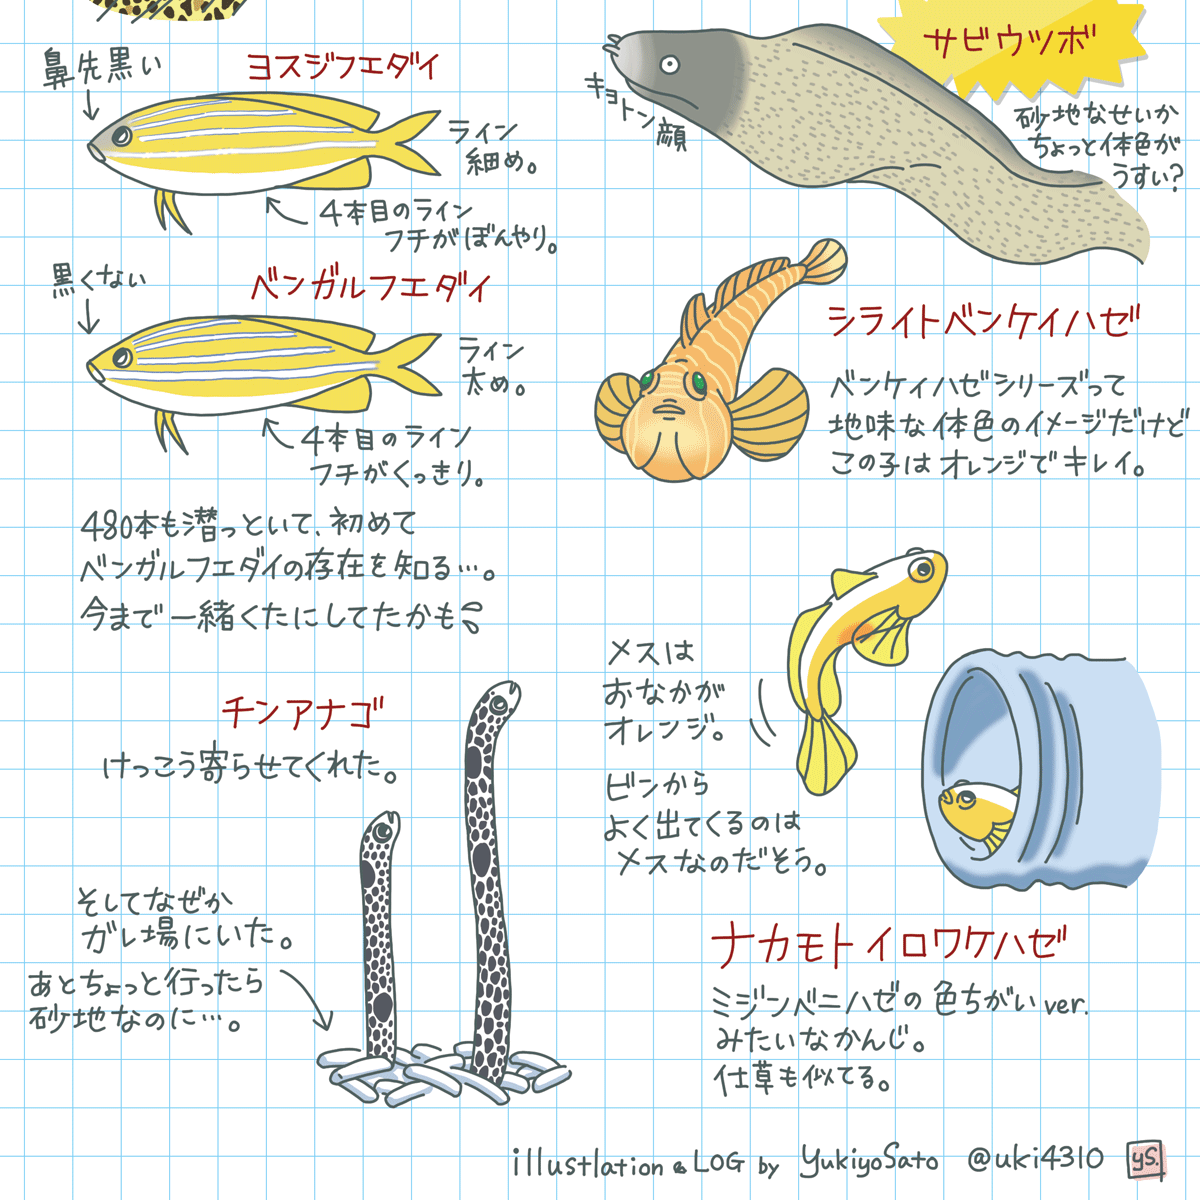 ヨスジフエダイ
鼻先黒い
ライン
細め。
4本目のライン
フチがぼんやり。
ベンガルフエダイ
黒くない
ライン
太め。
4本目のライン
フチがくっきり。
480本も潜っといて、初めて
ベンガルフエダイの存在を知る…。
今まで一緒くたにしてたかも
チンアナゴ
けっこう寄らせてくれた。
そしてなぜか
ガレ場にいた。
あとちょっと行ったら
砂地なのに…。
サビウツボ
キョトン顔
砂地なせいか
ちょっと体色が
うすい?
シライトベンケイハゼ
ベンケイハゼシリーズって
地味な体色のイメージだけど
この子はオレンジでキレイ。
メスは
おなかが
オレンジ。
ビンから
よく出てくるのは
メスなのだそう。
ナカモトイロワケハゼ
ミジンベニハゼの色ちがいver.
みたいなかんじ。
仕草も似てる。
illustlation & LOG by YukiyoSato @uki4310
yS.